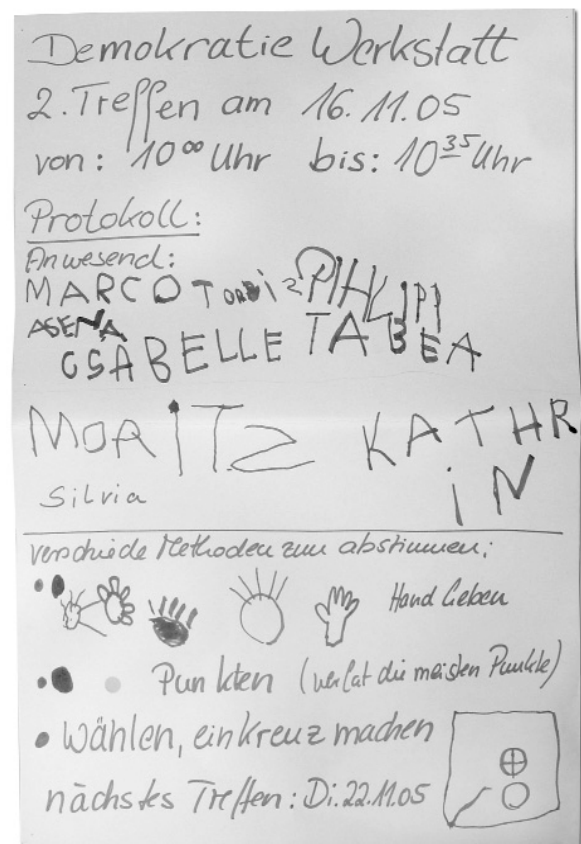 Demokratie Werkstatt
2. Treffen am 16.11.05
von: 10⁰⁰ Uhr bis: 10³⁵ Uhr
Protokoll:
Anwesend:
MARCO PHILIPP
ASENA TABEA
ISABELLE
MORiTZ KATHR
iN
Silvia
verschiede Methoden zum abstimmen:
Hand heben
Punkten (wer hat die meisten Punkte)
Wählen, ein Kreuz machen
nächstes Treffen: Di. 22.11.05